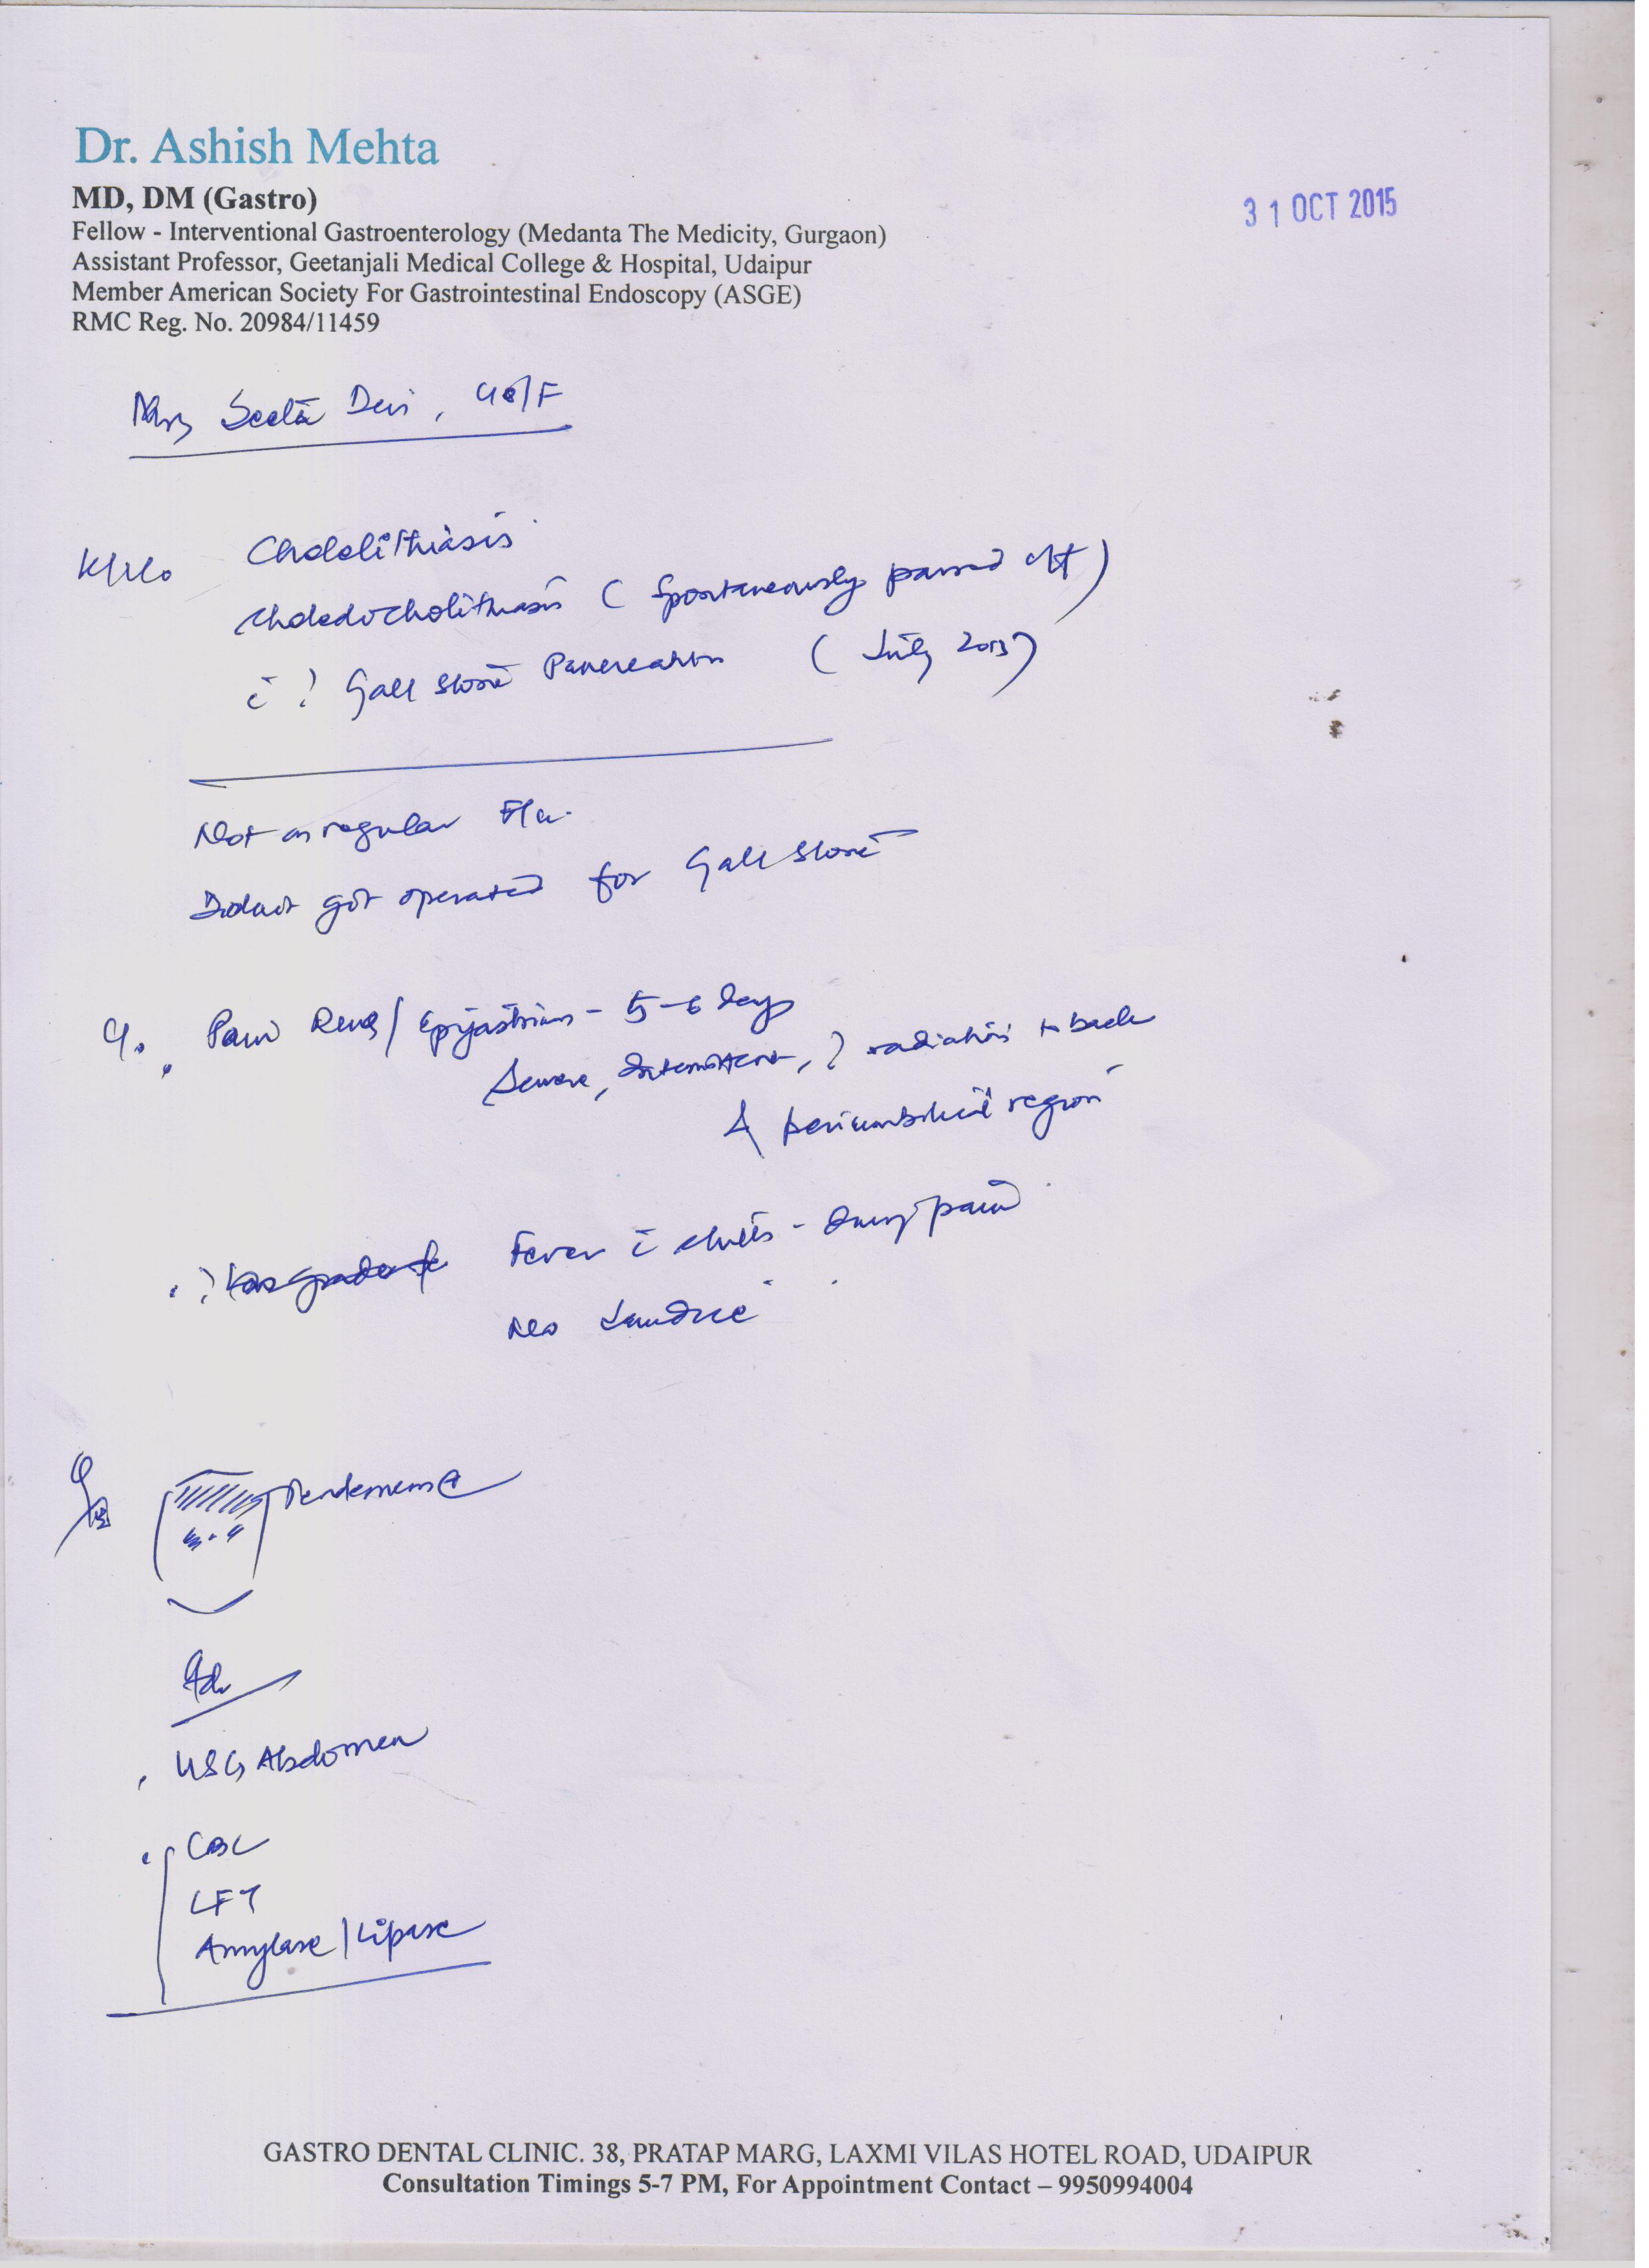 Dr. Ashish Mehta
MD, DM (Gastro)
31 OCT 2015
Fellow - Interventional Gastroenterology (Medanta The Medicity, Gurgaon)
Assistant Professor, Geetanjali Medical College & Hospital, Udaipur
Member American Society For Gastrointestinal Endoscopy (ASGE)
RMC Reg. No. 20984/11459
Mrs Seeta Devi, /F
K/c/o Cholelithiasis
Choledocholithiasis ( Spontaneously passed )
c̄ ? Gall stone Pancreatitis ( July 2013)
Not on regular F/u.
Didnot got operated for Gall stone
C/o . Pain / Epigastrium - 5-6 days
Severe, Intermittent, ? radiation to back
& periumbilical region
Fever c̄ chills - during pain
No Jaundice
Tenderness ⊕
Adv
. USG Abdomen
. CBC
LFT
Amylase / Lipase
GASTRO DENTAL CLINIC. 38, PRATAP MARG, LAXMI VILAS HOTEL ROAD, UDAIPUR
Consultation Timings 5-7 PM, For Appointment Contact – 9950994004